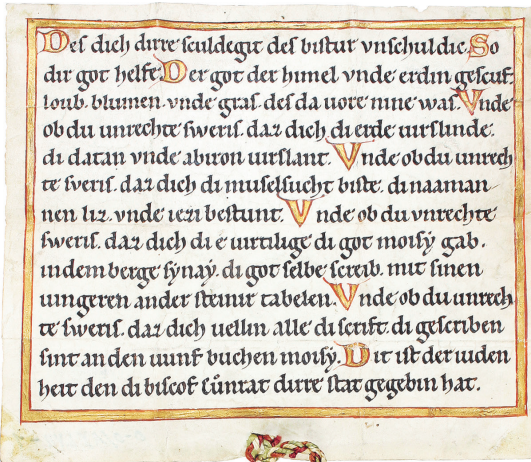 Des dich dirre sculdegit des bistur vnschuldic. So
dir got helfe. Der got der himel vnde erdin gescuf.
loub. blumen. vnde gras. des da uore nine was. Vnde
ob du unrechte sweris. daz dich di erde uirslinde.
di datan vnde abiron uirslant. Vnde ob du unrech
te sveris. daz dich di muselsucht biste. di naaman
nen liz. vnde iezi bestunt. Vnde ob du vnrechte
sweris. daz dich di e uirtilige di got moisy gab.
in dem berge synay. di got selbe screib. mit sinen
uingeren an der steinir tabelen. Vnde ob du unrech
te sweris. daz dich uellin alle di scrift. di gescriben
sint an den uunf buchen moisy. Dit ist der iuden
heit den di biscof cůnrat dirre stat gegebin hat.